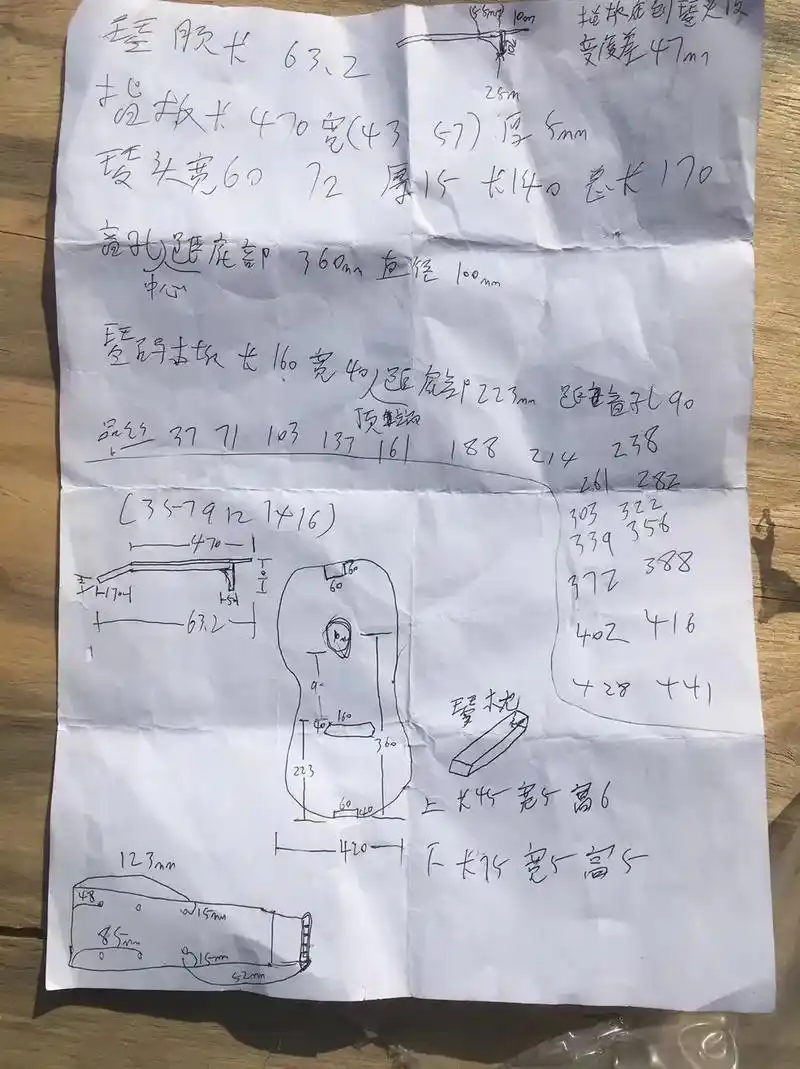 琴颈长 63.2
15.5mm 10mm
25m
指板底到琴头
47mm
指板长 470 宽(43 57) 厚5mm
琴头宽60 72 厚15 长140 总长170
音孔距底部 360mm 直径 100mm
中心
琴码 长160 宽40 距底部223mm 距音孔90
顶端
品丝 37 71 103 137 161 188 214 238
261 282
303 322
339 356
372 388
402 416
428 441
(3 5 7 9 12 14 16)
470
170
63.2
60
60
90
40
160
360
223
60
40
420
琴枕
上 长45 宽5 高6
下 长75 宽5 高5
123mm
48
15mm
85mm
15mm
52mm